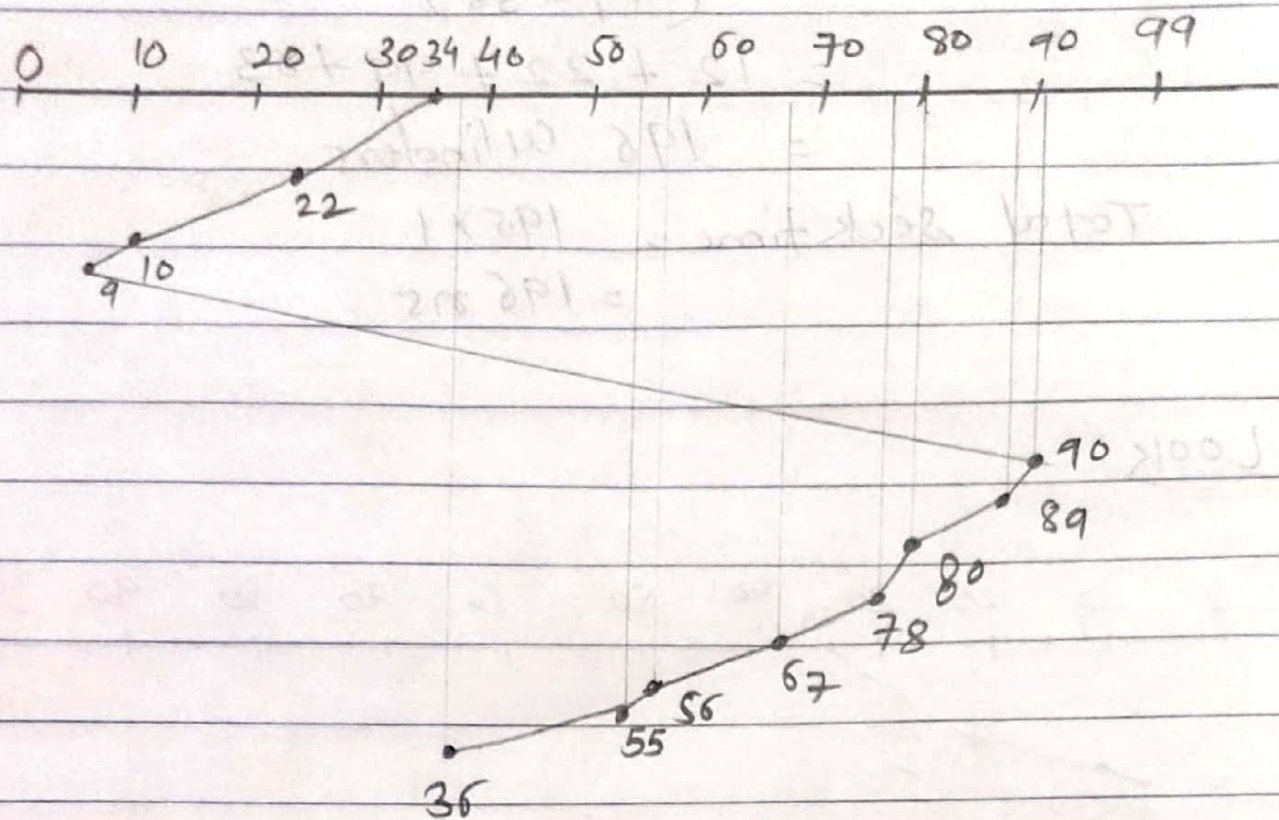 0 10 20 30 34 40 50 60 70 80 90 99
22
10
9
90
89
80
78
67
56
55
36